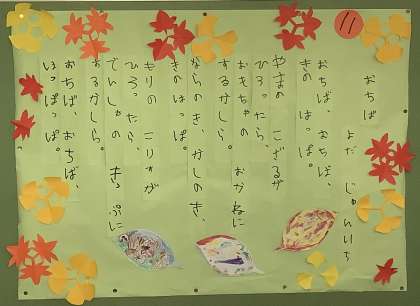 11
おちば
よだ じゅんいち
おちば、おちば、
きの はっぱ。
やまの こざるが
ひろったら、
おもちゃの おかねに
するかしら。
ならのき、かしのき、
きのはっぱ。
もりの こりすが
ひろったら、
でんしゃの きっぷに
するかしら。
おちば、おちば、